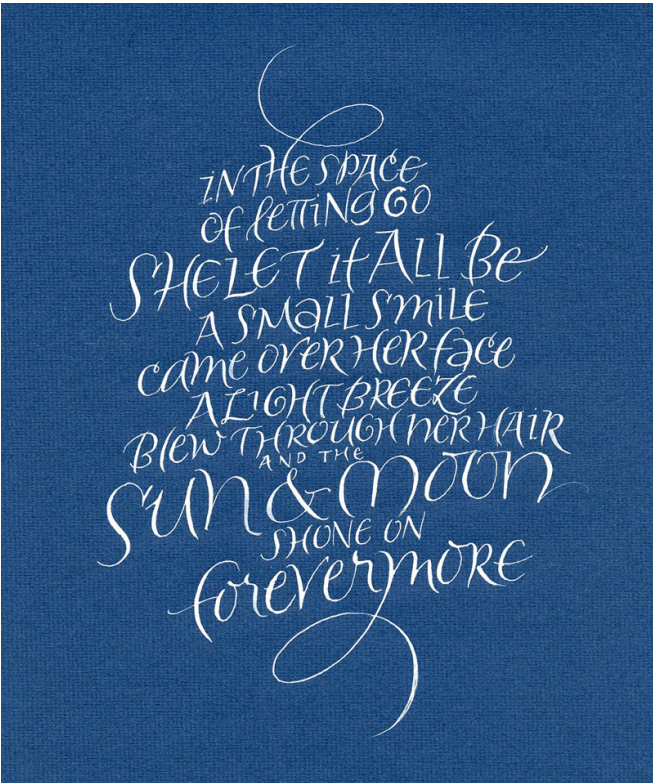 iN THE SPACE
OF LETTiNG GO
SHE LET iT ALL Be
A SMaLL SmiLE
came over HER face
A LIGHT BREEZE
BLEW THROUGH HER HAiR
AND THE
Sun & Moon
SHONE ON
forevermore